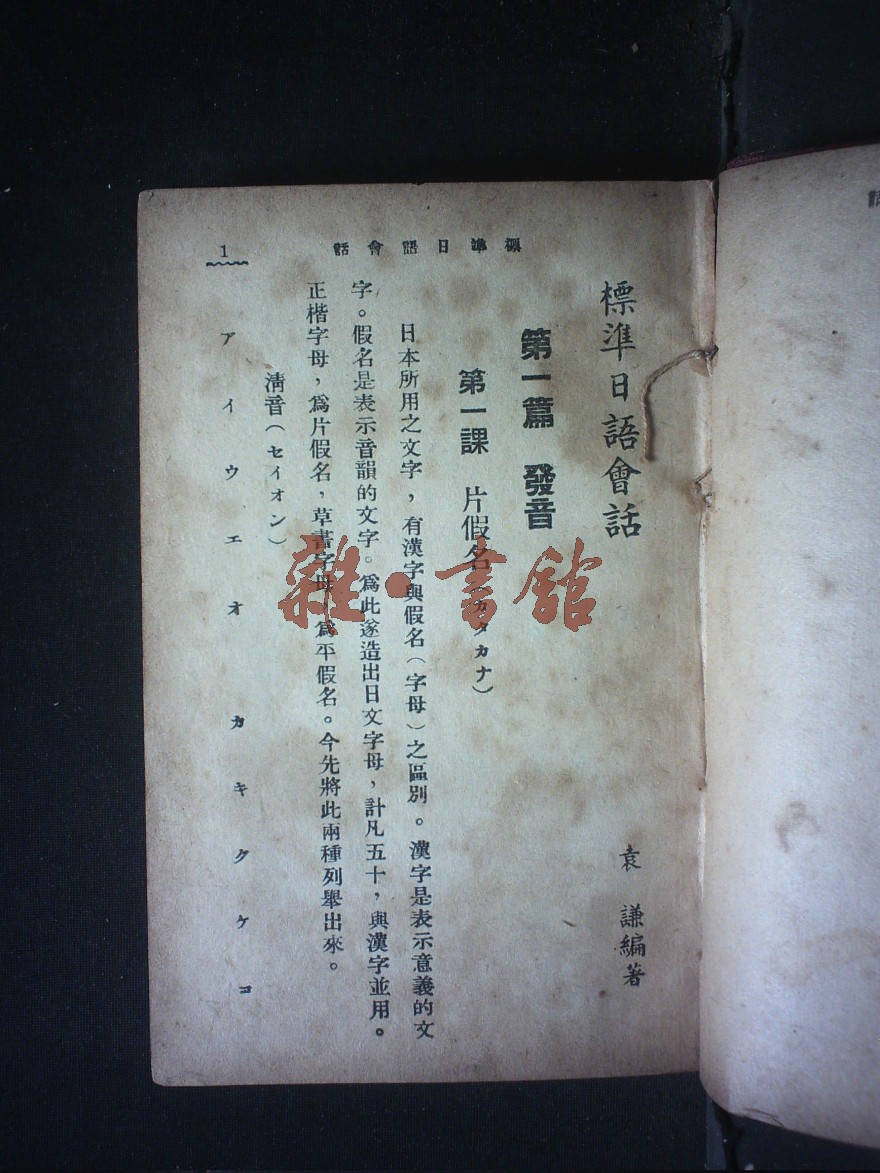 標準日語會話
1
標準日語會話
袁謙編著
第一篇 發音
第一課 片假名(カタカナ)
日本所用之文字，有漢字與假名(字母)之區別。漢字是表示意義的文
字。假名是表示音韻的文字。爲此遂造出日文字母，計凡五十，與漢字並用。
正楷字母，爲片假名，草書字母，爲平假名。今先將此兩種列舉出來。
淸音(セイオン)
アイウエオ カキクケコ
雜·書館